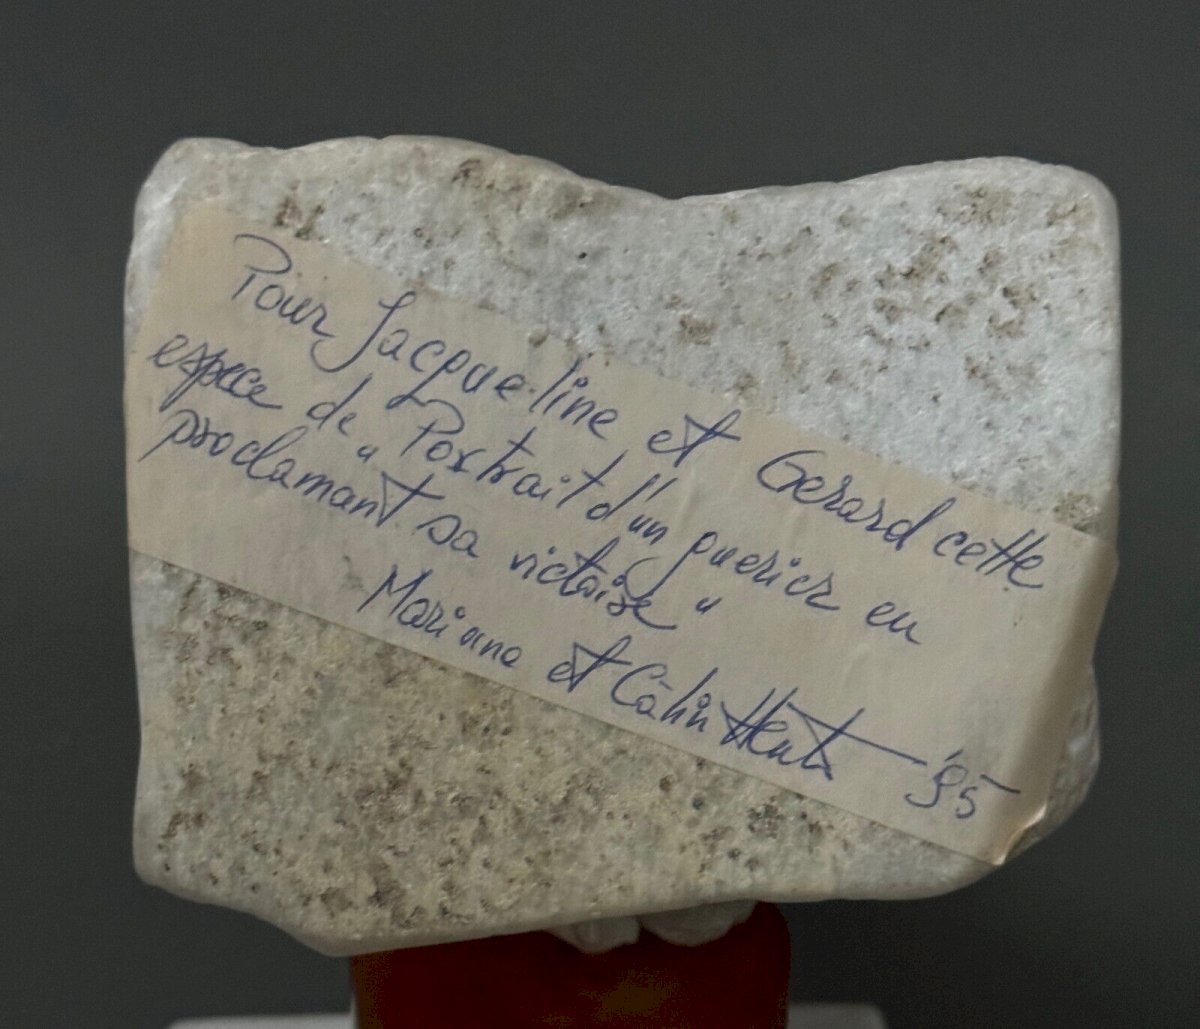 Pour Jacque-line et Gerard cette
espece de "Portrait d'un guerier en
proclamant sa victoire"
Mariana et Călin '95